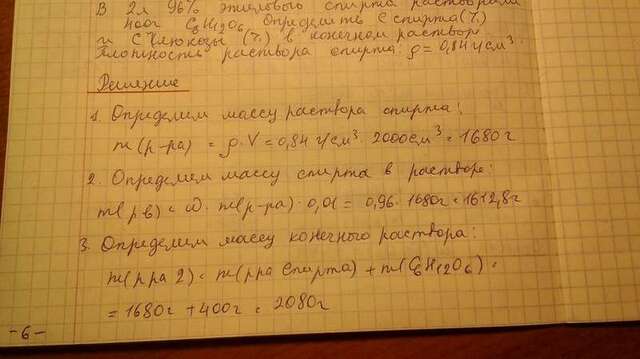 В 2л 96% этилового спирта растворили
400г C₆H₁₂O₆. Определить C спирта (%)
и C глюкозы (%) в конечном растворе.
Плотность раствора спирта: ρ = 0,84 г/см³.
Решение
1. Определим массу раствора спирта:
m(р-ра) = ρ·V = 0,84 г/см³ · 2000см³ = 1680г
2. Определим массу спирта в растворе:
m(рв) = ω · m(р-ра) · 0,01 = 0,96 · 1680г = 1612,8г
3. Определим массу конечного раствора:
m(рра 2) = m(рра спирта) + m(C₆H₁₂O₆) =
= 1680г + 400г = 2080г
-6-